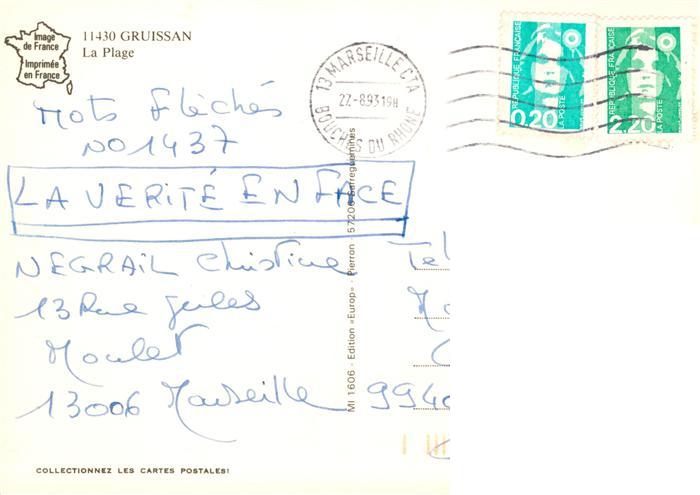 Image
de France
Imprimée
en France
11430 GRUISSAN
La Plage
13 MARSEILLE CTA
22-8.93 19H
BOUCHES DU RHONE
REPUBLIQUE FRANÇAISE
0,20
LA POSTE
REPUBLIQUE FRANÇAISE
2,20
LA POSTE
Mots fléchés
NO 1437
LA VERITÉ EN FACE
NEGRAIL Christine
13 Rue Jules
Moulet
13006 Marseille
MI 1606 - Edition «Europ» - Pierron - 57206 Sarreguemines
Tel
9940
COLLECTIONNEZ LES CARTES POSTALES!